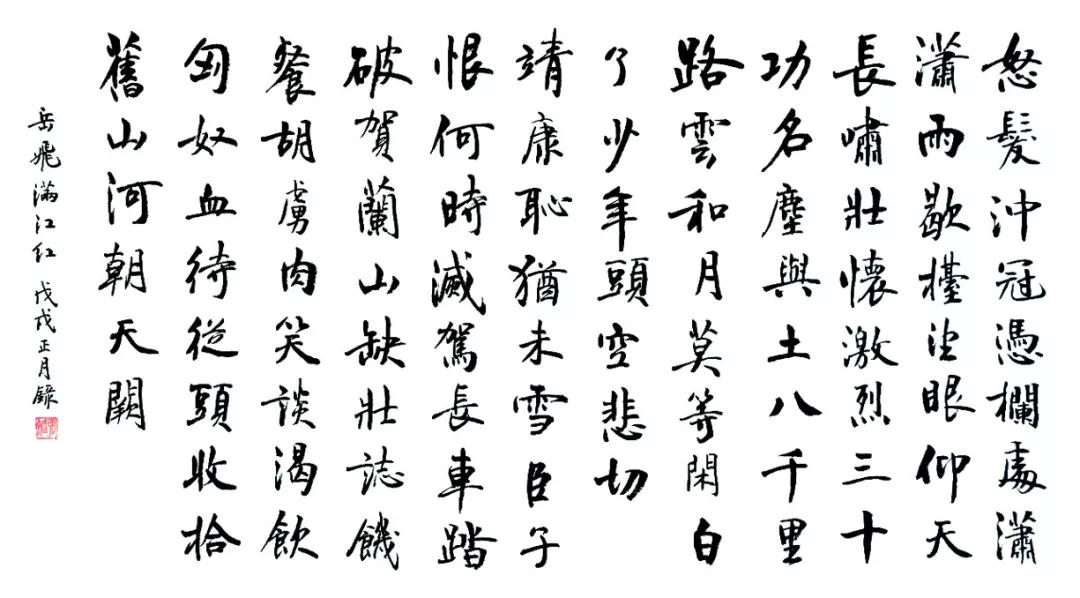 怒髮沖冠憑欄處瀟
瀟雨歇擡望眼仰天
長嘯壯懷激烈三十
功名塵與土八千里
路雲和月莫等閑白
了少年頭空悲切
靖康恥猶未雪臣子
恨何時滅駕長車踏
破賀蘭山缺壯誌饑
餐胡虜肉笑談渴飲
匈奴血待從頭收拾
舊山河朝天闕
岳飛滿江紅 戊戌正月錄